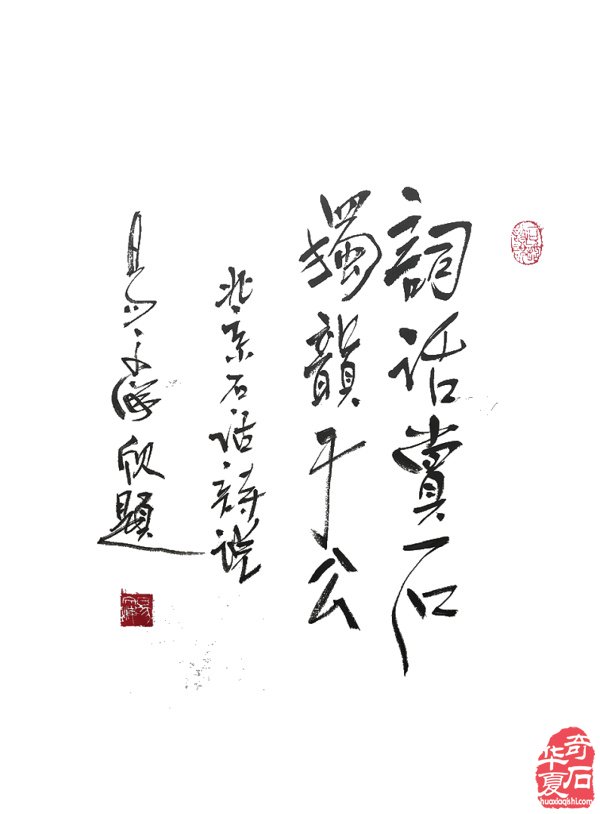 詞话賞石
獨韻于公
京石话詩說
欣題
华夏
奇石
huaxiaqishi.com